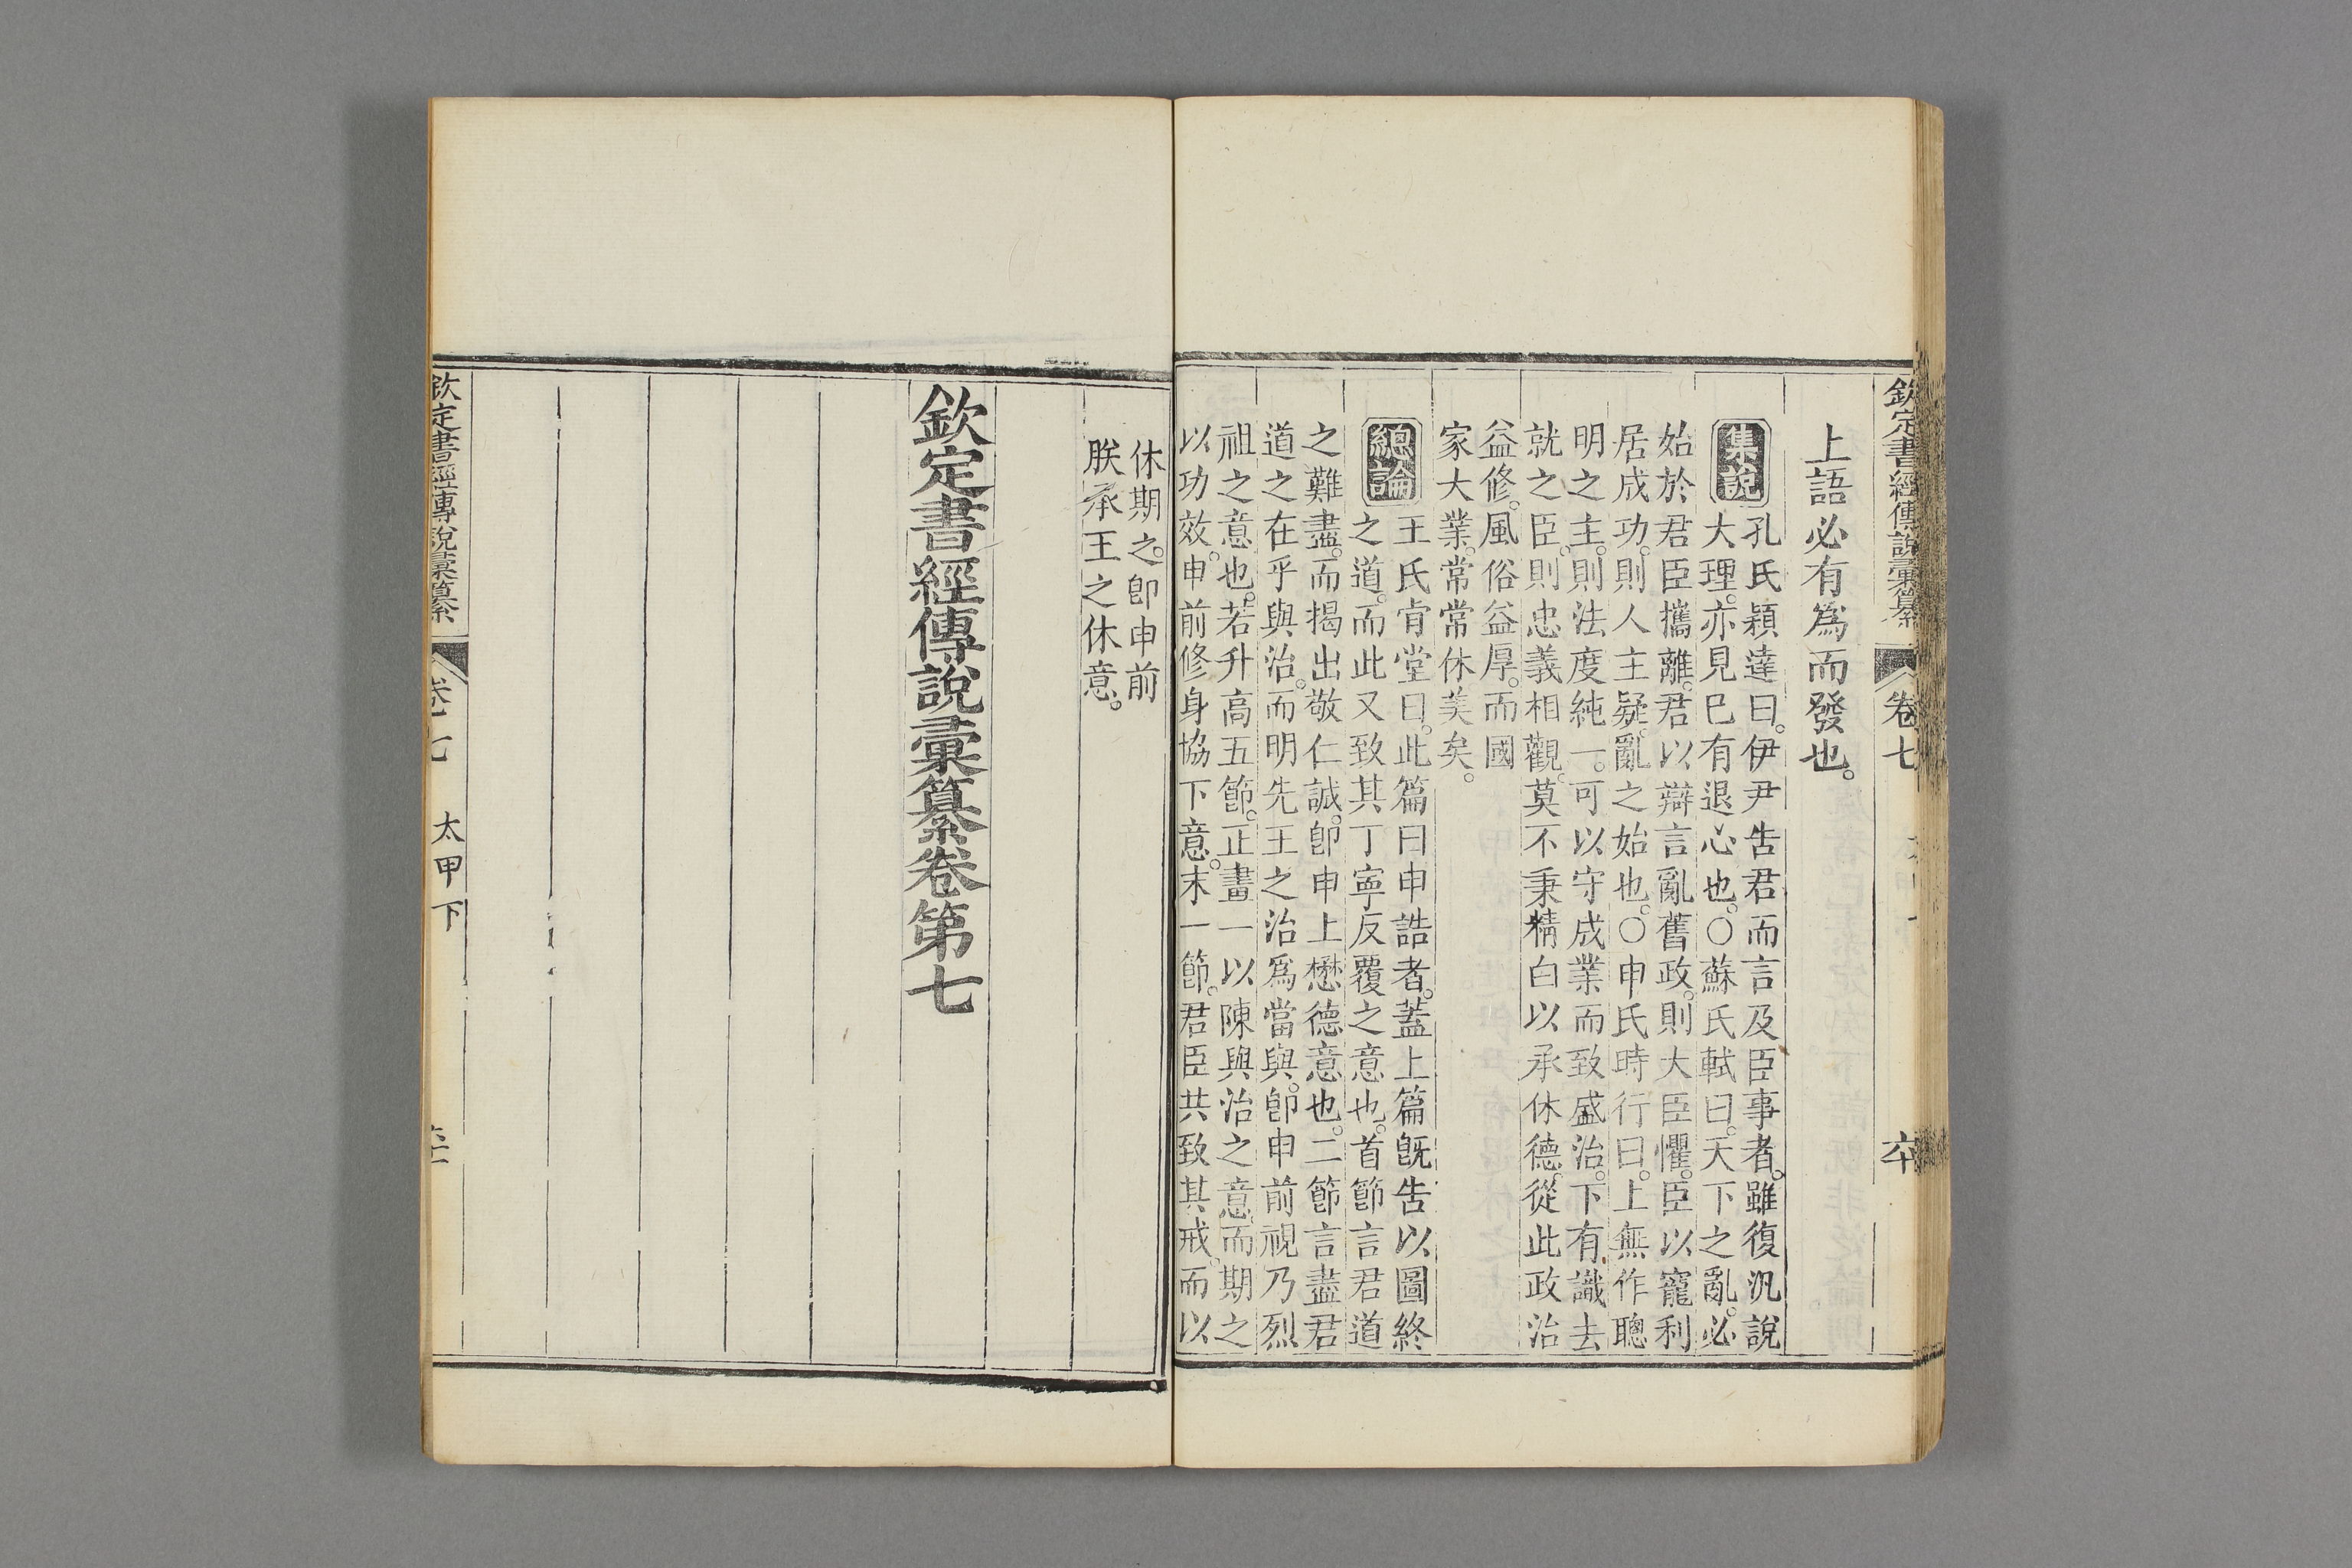 欽定書經傳說彙纂 卷七 卒
上語必有爲而發也。
集說
孔氏穎達曰。伊尹告君而言及臣事者。雖復汎說
大理。亦見巳有退心也。○蘇氏軾曰。天下之亂。必
始於君臣攜離。君以辯言亂舊政。則大臣懼。臣以寵利
居成功。則人主疑。亂之始也。○申氏時行曰。上無作聰
明之主。則法度純一。可以守成業而致盛治。下有識去
就之臣。則忠義相觀。莫不秉精白以承休德。從此政治
益修。風俗益厚。而國
家大業。常常休美矣。
總論
王氏肯堂曰。此篇曰申誥者。蓋上篇旣告以圖終
之道。而此又致其丁寧反覆之意也。首節言君道
之難盡。而揭出敬仁誠。卽申上懋德意也。二節言盡君
道之在乎與治。而明先王之治爲當與。卽申前視乃烈
祖之意也。若升高五節。正畫一以陳與治之意。而期之
以功效。申前修身協下意。末一節。君臣共致其戒。而以
休期之。卽申前
朕承王之休意。
欽定書經傳說彙纂卷第七
欽定書經傳說彙纂 卷七 太甲下